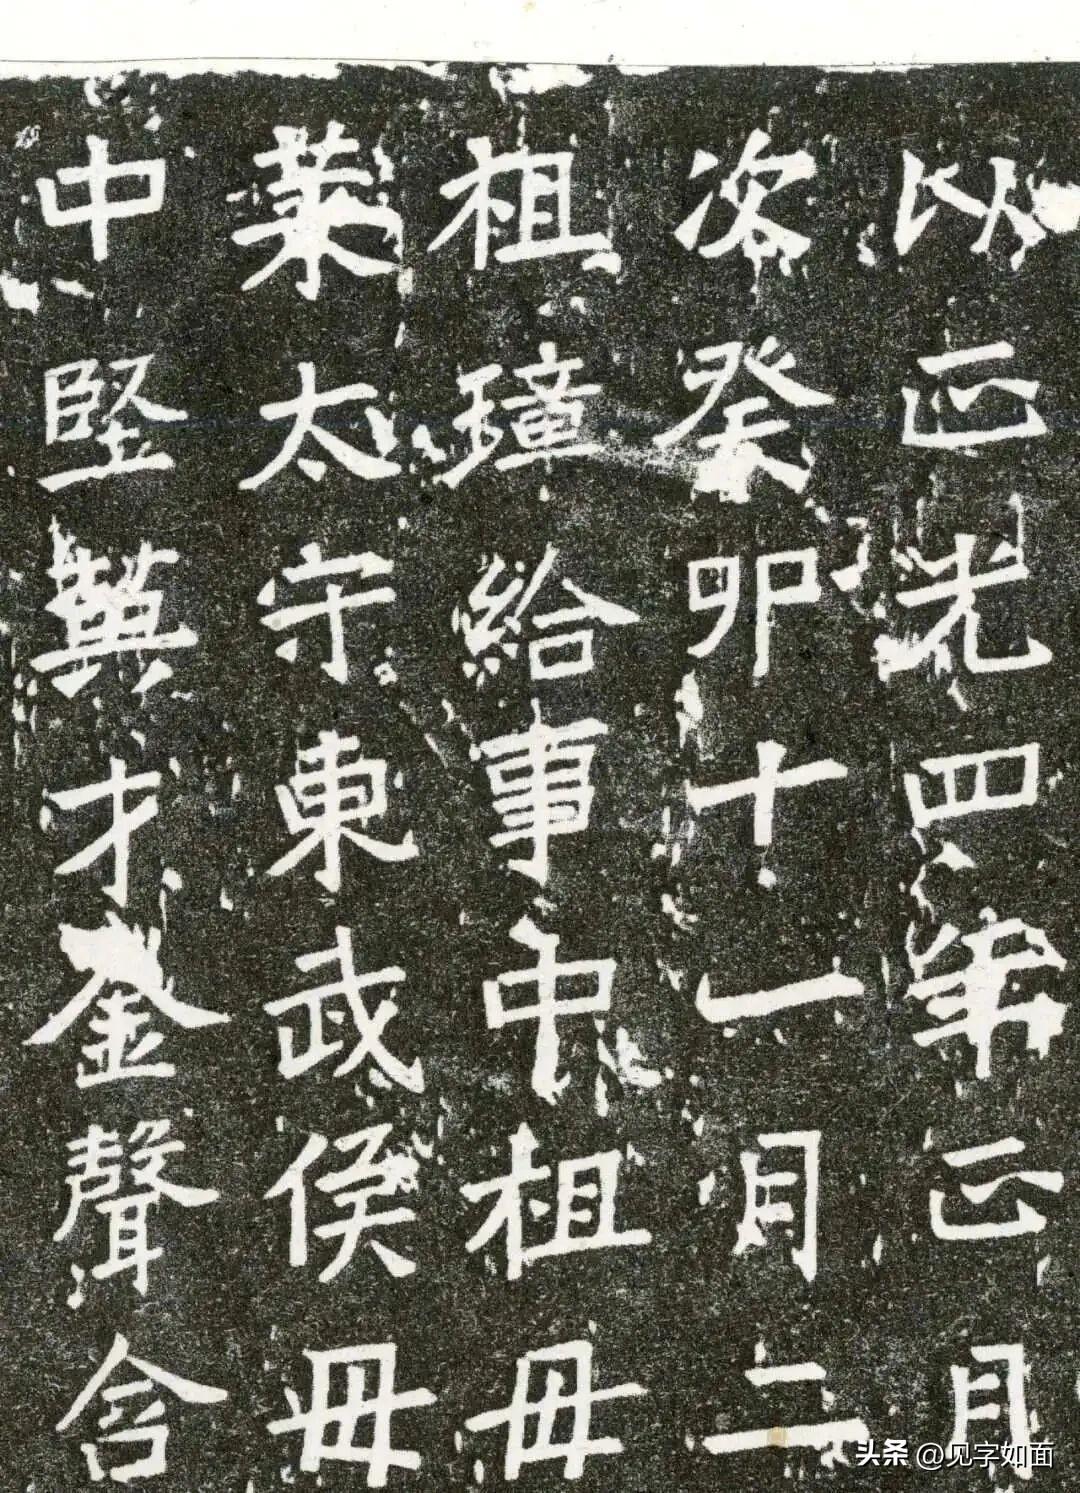 以正光四年正月
次癸卯十一月二
祖璋給事中祖母
萊太守東武侯母
中堅英才金聲含
头条 @见字如面